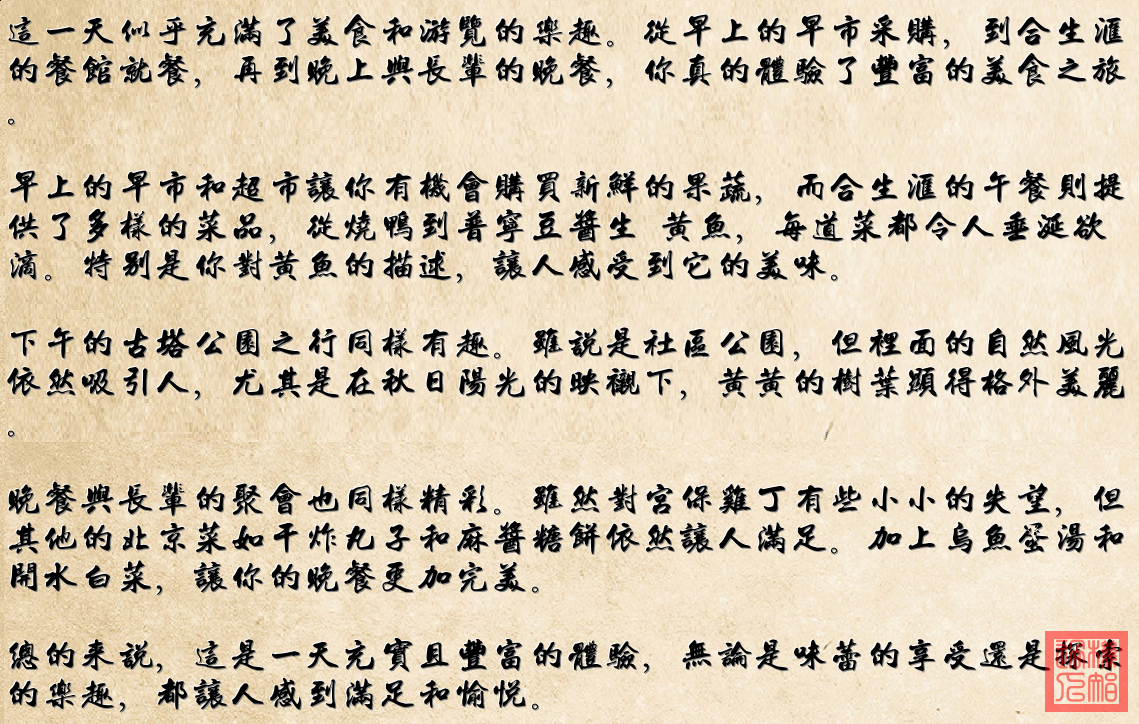 這一天似乎充滿了美食和游覽的樂趣。從早上的早市采購，到合生滙
的餐館就餐，再到晚上與長輩的晚餐，你真的體驗了豐富的美食之旅
。
早上的早市和超市讓你有機會購買新鮮的果蔬，而合生滙的午餐則提
供了多樣的菜品，從燒鴨到普寧豆醬生 黃魚，每道菜都令人垂涎欲
滴。特別是你對黃魚的描述，讓人感受到它的美味。
下午的古塔公園之行同樣有趣。雖說是社區公園，但裡面的自然風光
依然吸引人，尤其是在秋日陽光的映襯下，黃黃的樹葉顯得格外美麗
。
晚餐與長輩的聚會也同樣精彩。雖然對宮保雞丁有些小小的失望，但
其他的北京菜如干炸丸子和麻醬糖餅依然讓人滿足。加上烏魚蛋湯和
開水白菜，讓你的晚餐更加完美。
總的来說，這是一天充實且豐富的體驗，無論是味蕾的享受還是探索
的樂趣，都讓人感到滿足和愉悅。